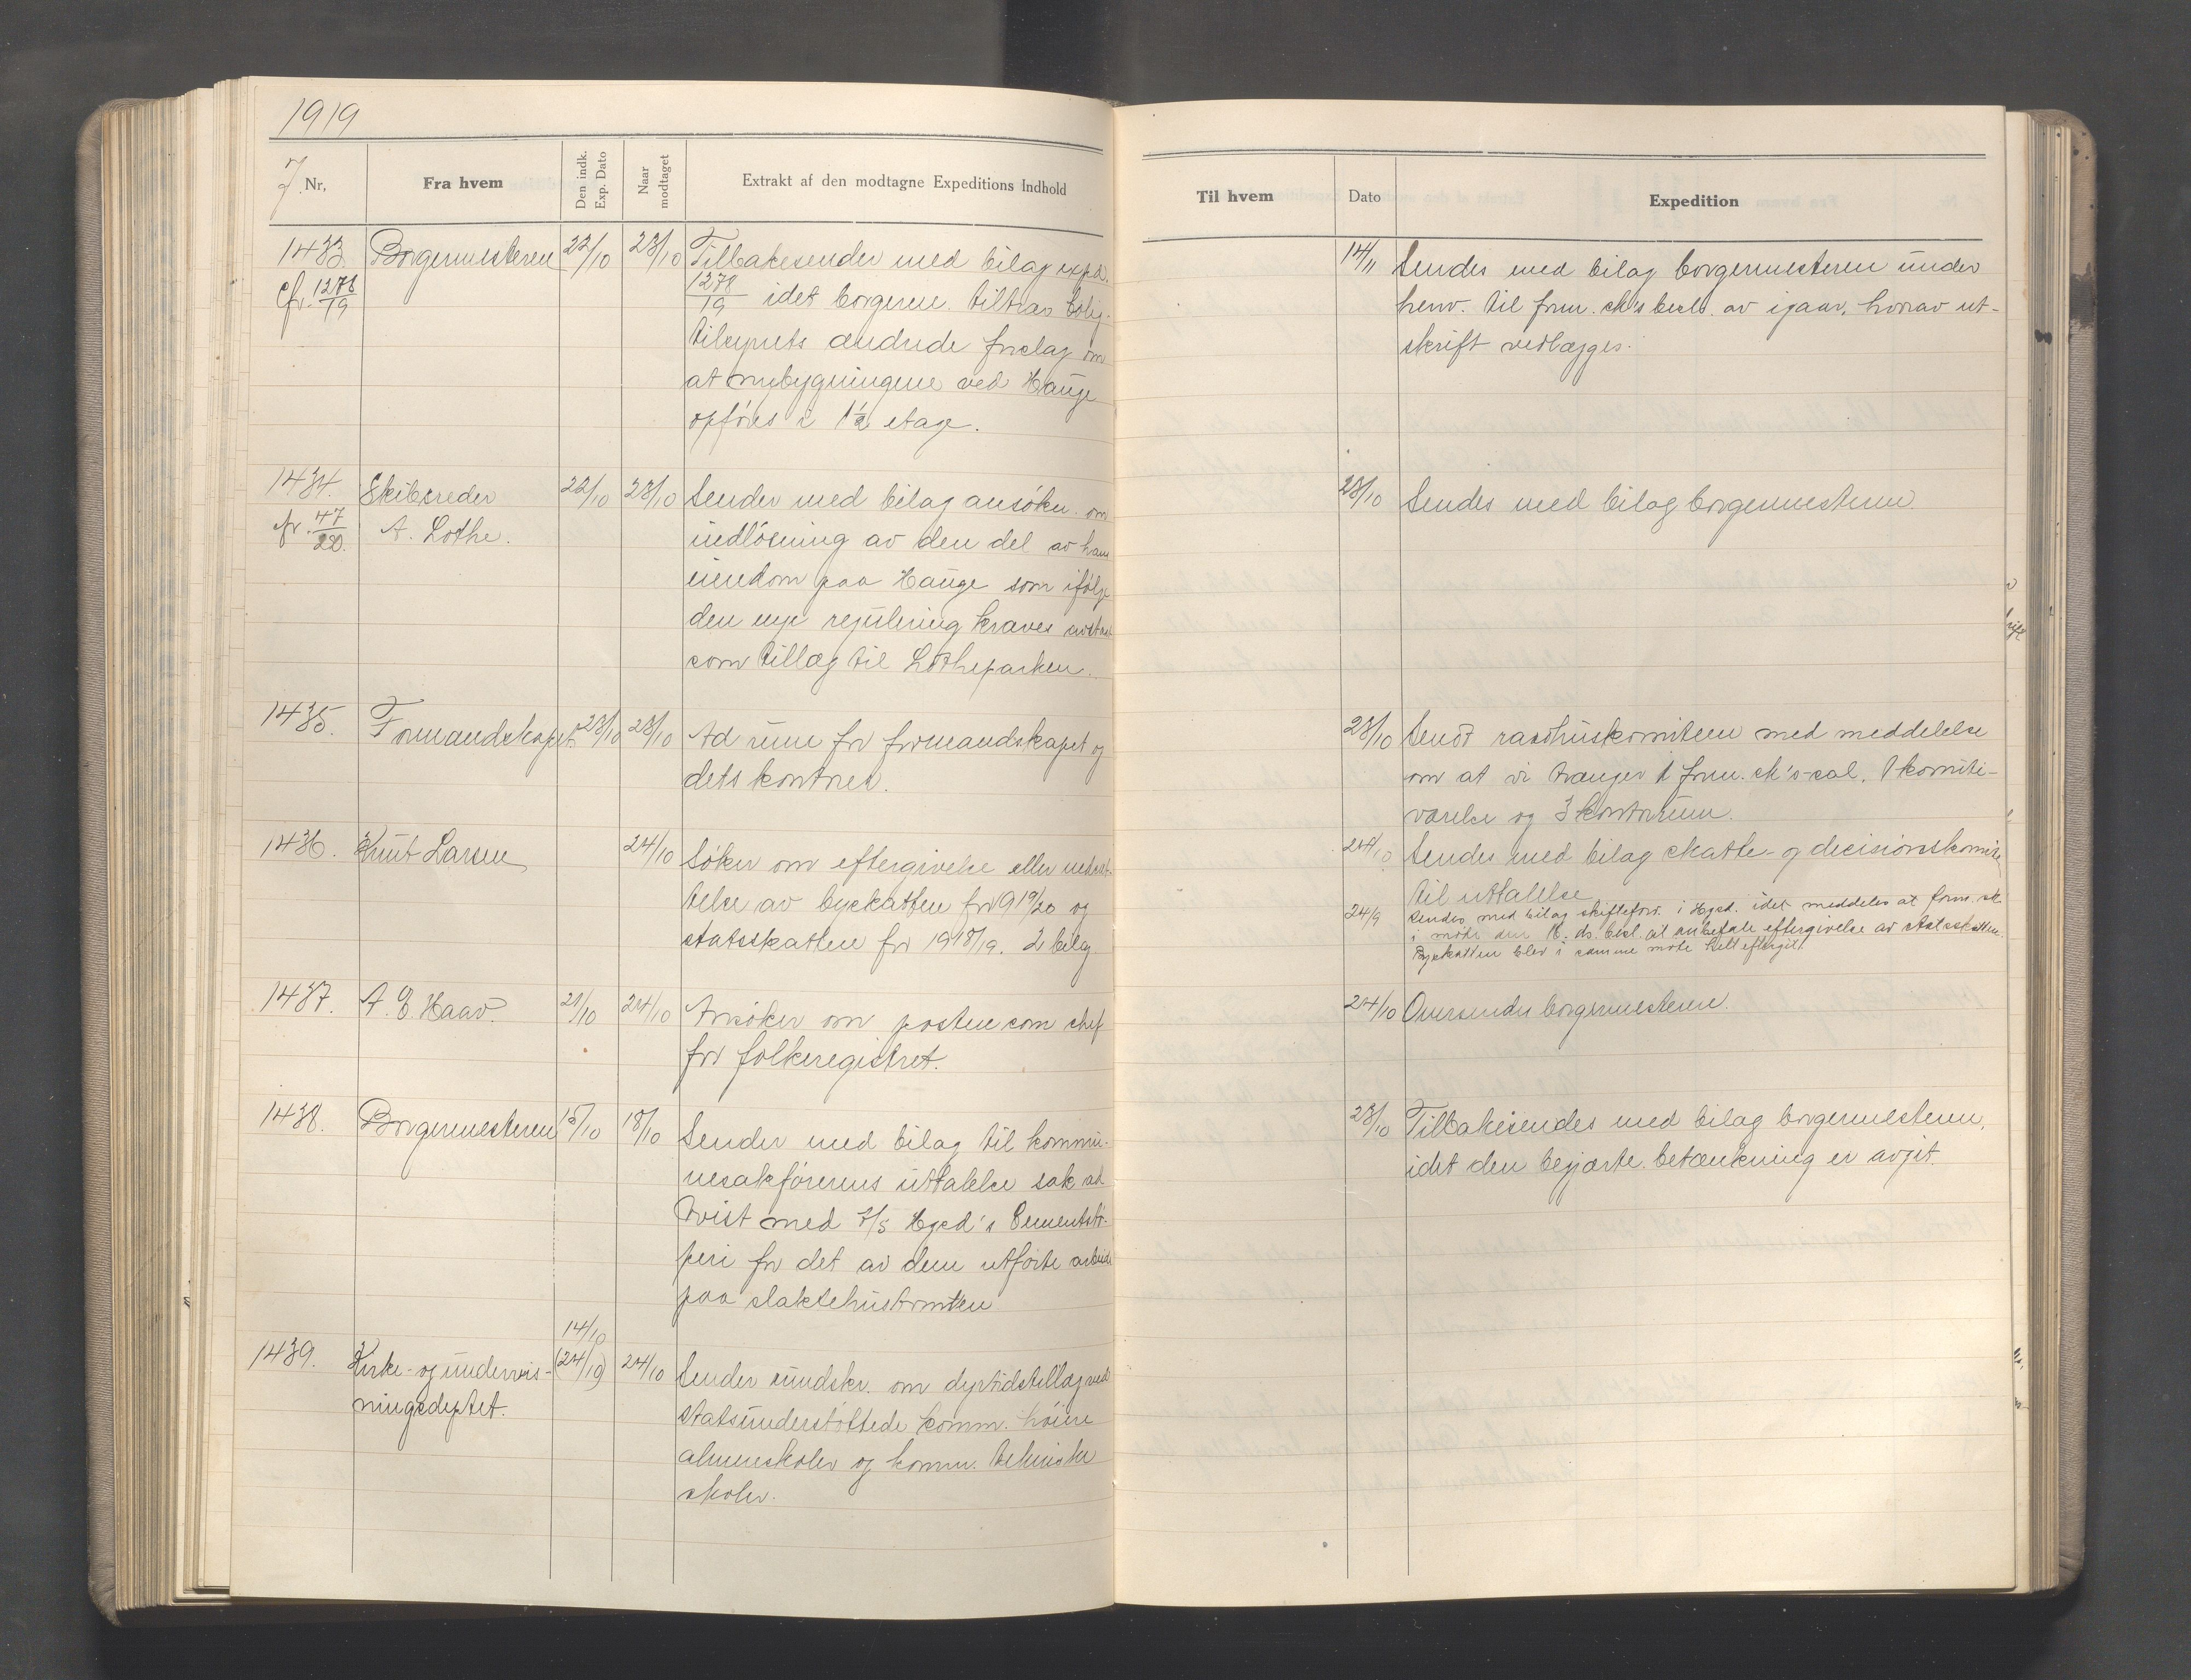 1919
J. Nr,
Fra hvem
Den indk. Exp. Dato
Naar modtaget
Extrakt af den modtagne Expeditions Indhold
Til hvem
Dato
Expedition
1433.
cfr. 1278/19
Borgermesteren
22/10
23/10
Tilbakesender med bilag expd.
1278/19 idet borgerm. tiltrær bolig-
tilsynets ændrede forslag om
at nybygningene ved Hauge
opføres i 1½ etage.
14/11
Sendes med bilag borgermesteren under
henv. til form. sk's besl. av igaar, hvorav ut-
skrift vedlægges.
1434.
cfr. 47/20.
Skibsreder
A. Lothe.
22/10
23/10
Sender med bilag ansøkn. om
indløsning av den del av hans
eiendom paa Hauge som ifølge
den nye regulering kræves
som tillæg til Lotheparken.
28/10
Sendes med bilag borgermesteren.
1435.
Formandskapet
23/10
23/10
Ad rum for formandskapet og
dets kontorer.
23/10
Sendt raadhuskomiteen med meddelelse
om at vi trænger 1 form. sk's-sal, 1 komite-
værelse og 3 kontorrum.
1436.
Knut Larsen
24/10
Søker om eftergivelse eller nedsæt-
telse av byskatten for 1919/20 og
statsskatten for 1918/19. 2 bilag.
24/10
Sendes med bilag skatte- og decisionskomite
til uttalelse
24/9
Sendes med bilag skiftefor. i Hgsd. idet meddeles at form. sk.
i møte den 16. ds. besl. at anbefale eftergivelse av statsskatten.
Byskatten blev i samme møte helt eftergit.
1437.
A. E. Haav.
21/10
24/10
Ansøker om posten som chef
for folkeregistret.
24/10
Oversendes borgermesteren.
1438.
Borgermesteren
15/10
18/10
Sender med bilag til kommu-
nesakførerens uttalelse sak ad
tvist med A/S Hgsd's Cementstø-
peri for det av dem utførte arbeide
paa slaktehustomten
23/10
Tilbakesendes med bilag borgermesteren,
idet den begjærte betænkning er avgit.
1439.
Kirke- og undervis-
ningsdeptet.
14/10
(24/10)
24/10
Sender rundskr. om dyrtidstillæg ved
statsunderstøttede komm. høiere
almenskoler og komm. tekniske
skoler.